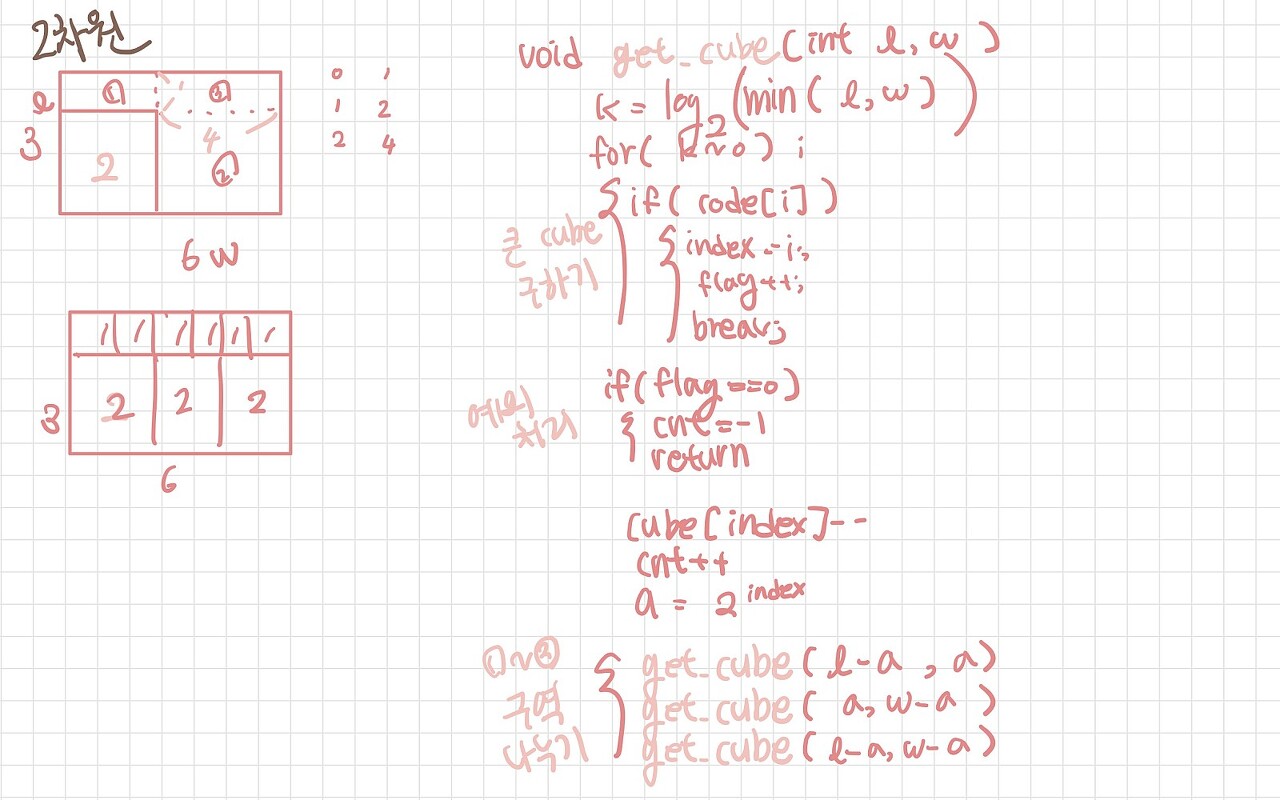 2차원
① ③
l
3
4
2 ②
6 w
0 1
1 2
2 4
1 1 1 1 1 1
3 2 2 2
6
void get_cube(int l, w )
k = log₂(min( l, w ))
for( k~0 ) i
{ if( code[i] )
큰 cube
구하기
{ index = i;
flag++;
break;
if( flag ==0)
예외
처리
{ cnt=-1
return
cube[index]--
cnt++
a = 2^index
①~③
구역
나누기
{ get_cube( l-a , a)
get_cube( a, w-a )
get_cube( l-a, w-a )